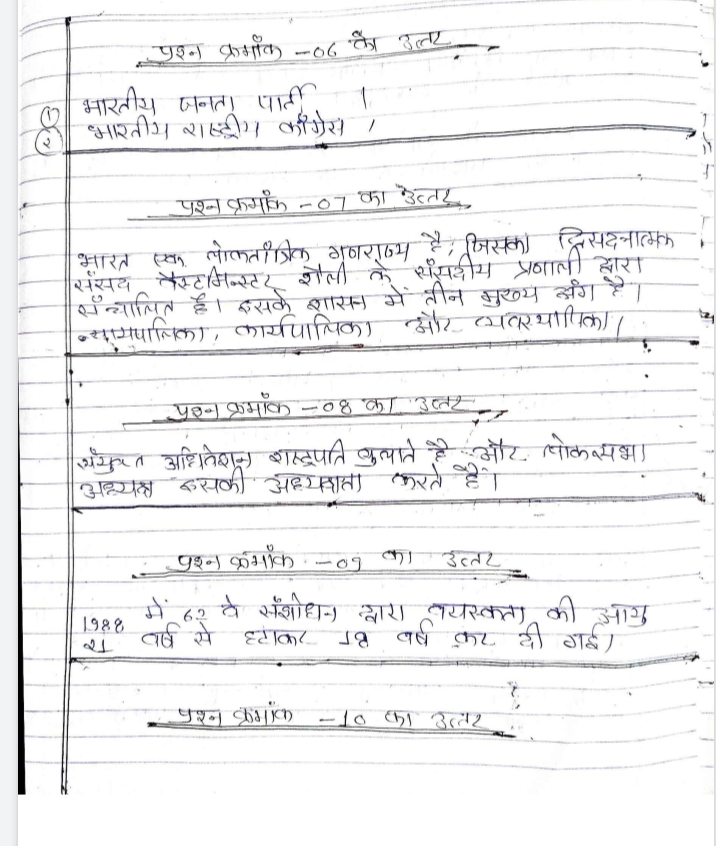 प्रश्न क्रमाँक -06 का उत्तर
① भारतीय जनता पार्टी ।
② भारतीय राष्ट्रीय काँग्रेस ।
प्रश्न क्रमाँक -07 का उत्तर
भारत एक लोकताँत्रिक गणराज्य है, जिसका द्विसदनात्मक
संसद वेस्टमिन्स्टर शैली के सँसदीय प्रणाली द्वारा
सँचालित है। इसके शासन में तीन मुख्य अंग है।
न्यायपालिका, कार्यपालिका और व्यवस्थापिका।
प्रश्न क्रमाँक -08 का उत्तर
सँयुक्त अधिवेशन राष्ट्रपति बुलाते है और लोकसभा
अध्यक्ष इसकी अध्यक्षता करते हैं।
प्रश्न क्रमाँक -09 का उत्तर
1988 में 62 वे सँशोधन द्वारा वयस्कता की आयु
21 वर्ष से हटाकर 18 वर्ष कर दी गई।
प्रश्न क्रमाँक -10 का उत्तर